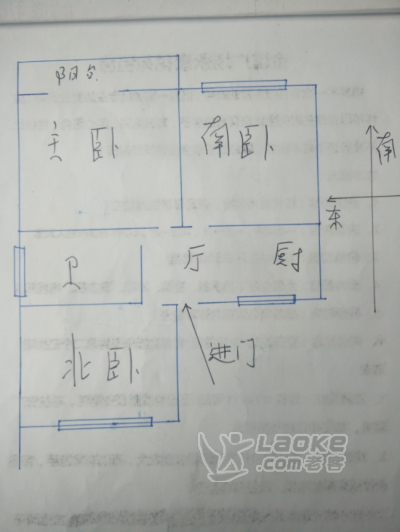 阳台
主卧
南卧
南
东
卫
厅
厨
进门
北卧
LAOKE
.com老客